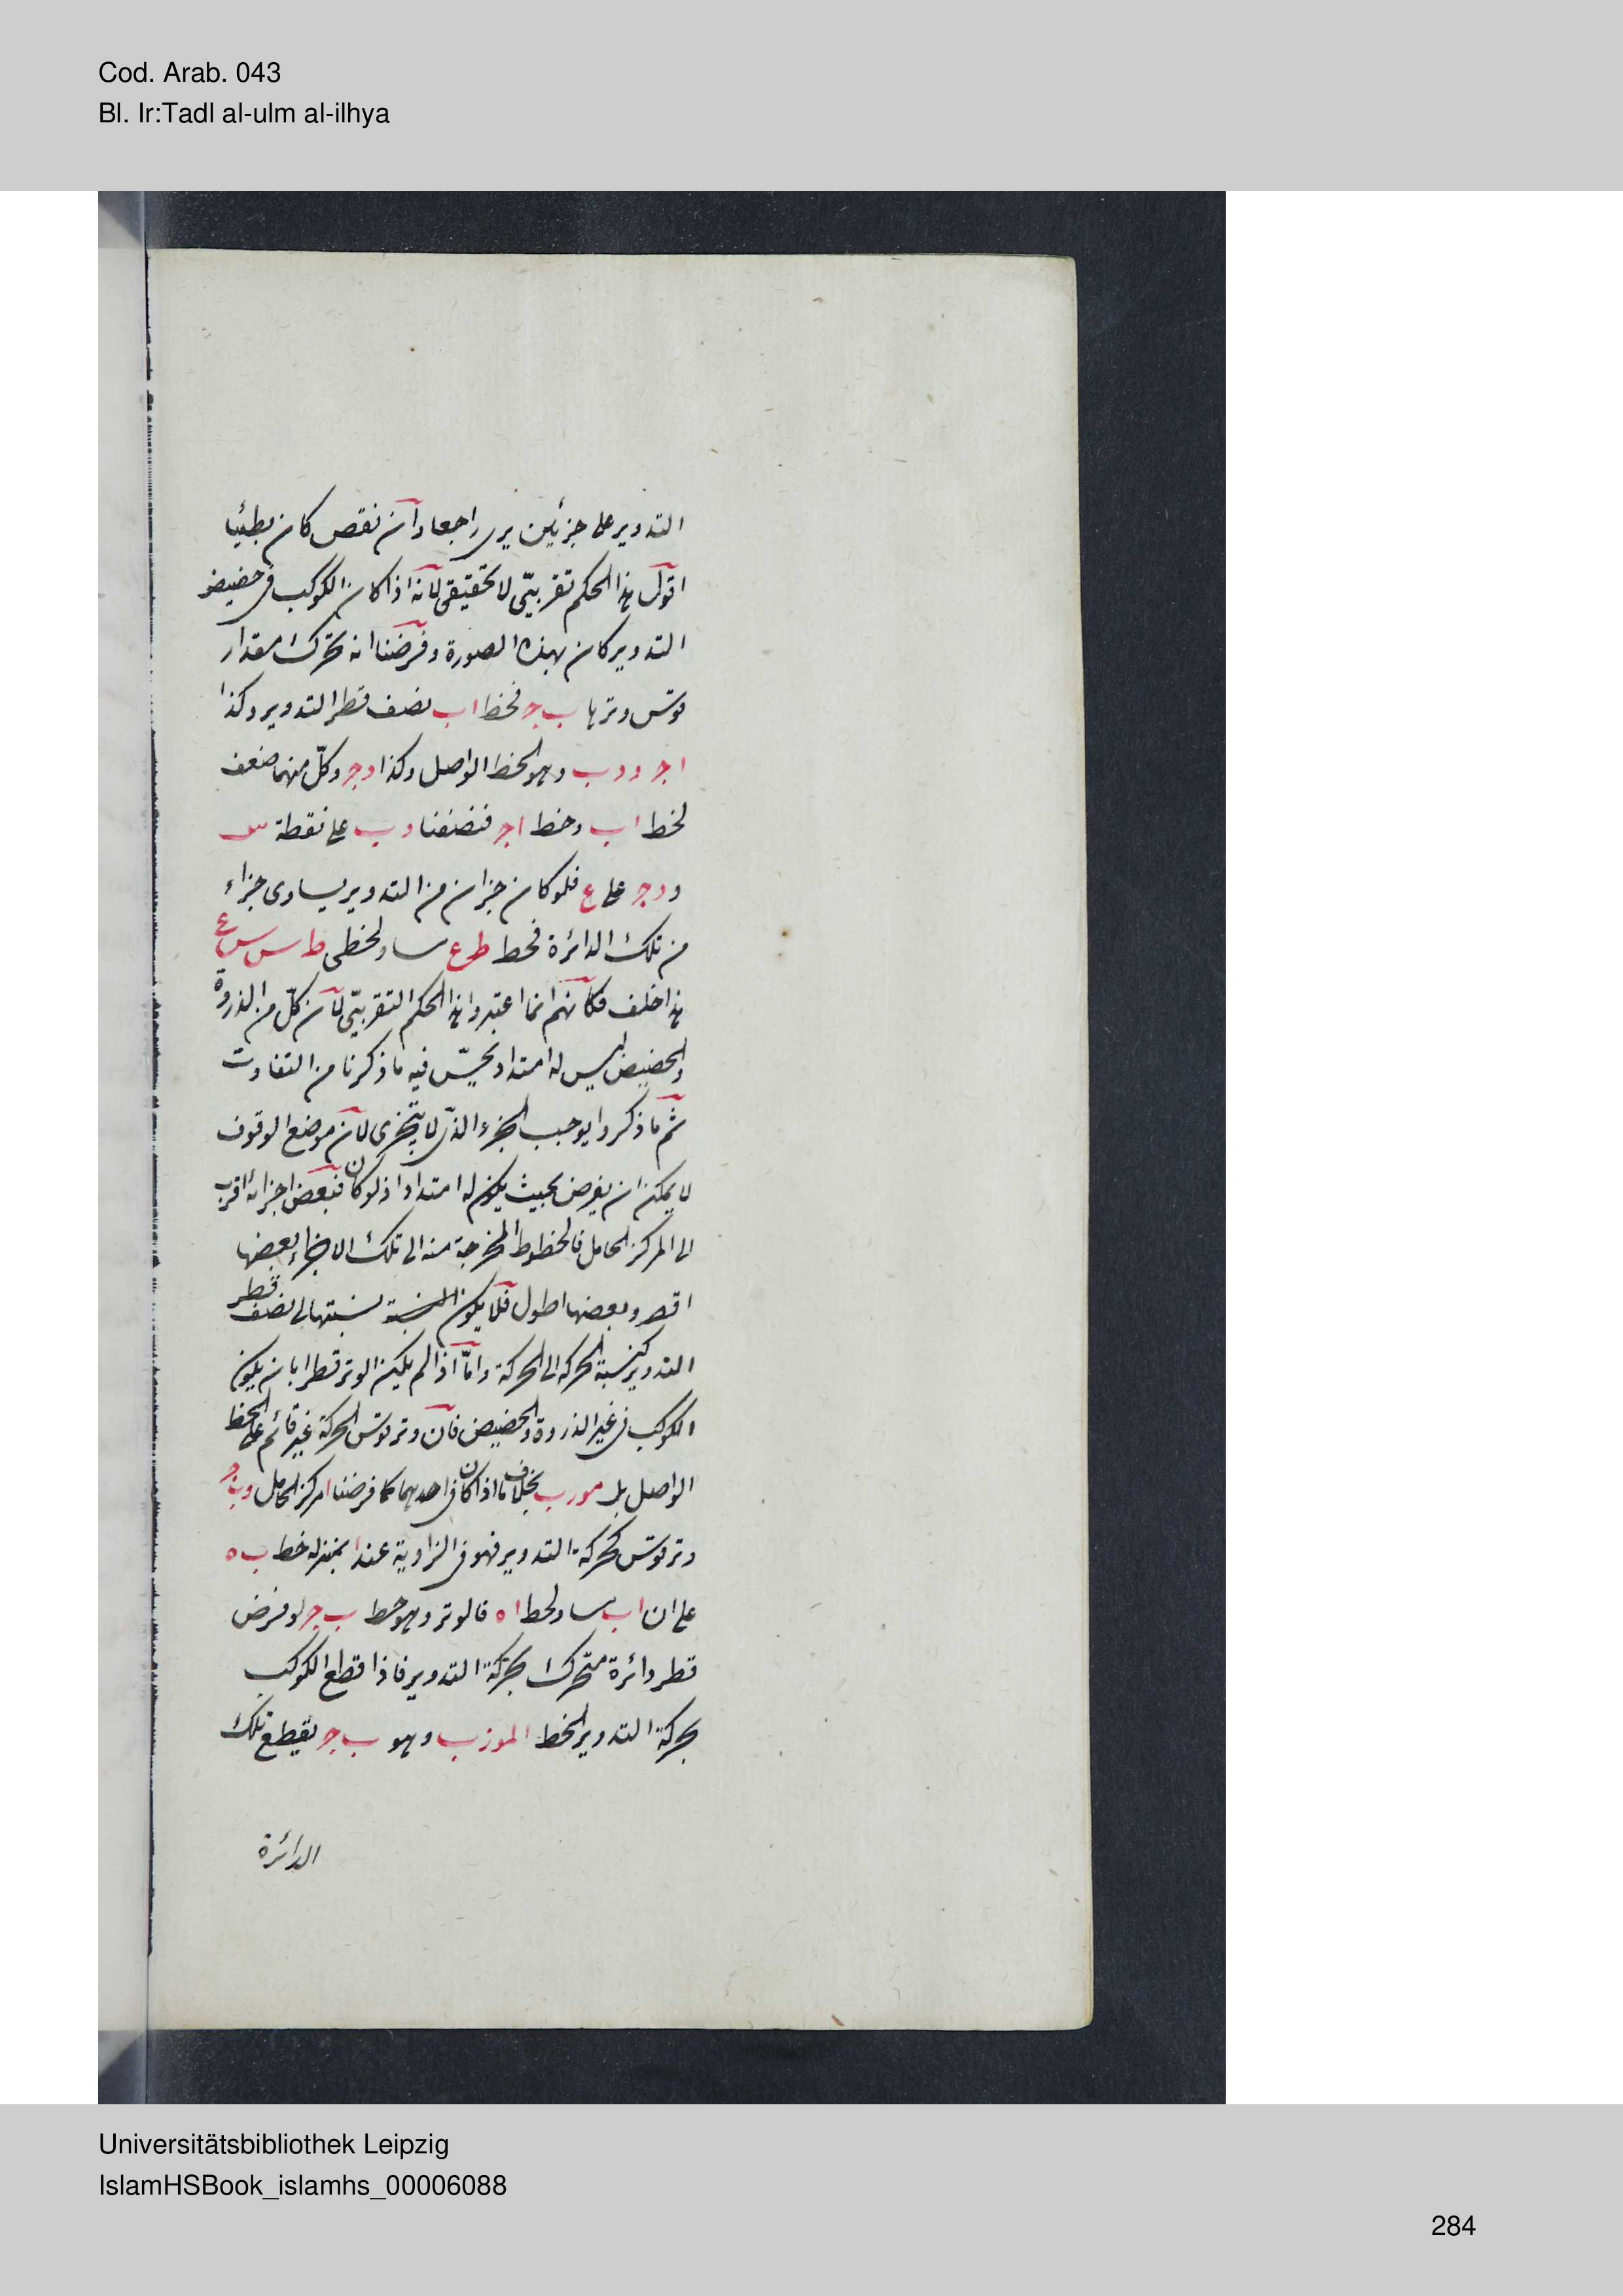 Cod. Arab. 043
Bl. Ir:Tadl al-ulm al-ilhya
التدوير على جزئين يرى راجعا وان نقص كان بطيئا
اقول هذا الحكم تقريبىّ لا تحقيقى لانه اذا كان الكوكب فى حضيض
التدوير كان بهذه الصورة وفرضنا انه تحرك مقدار
قوس وترها ب ج فخط ا ب نصف قطر التدوير وكذا
ا ج و د ب وهو الخط الواصل وكذا د ج وكلّ منهما ضعف
لخط ا ب وخط ا ج فنصفنا د ب على نقطة س
و د ج على ع فلو كان جزان من التدوير يساوى جزاء
من تلك الدائرة فخط ط ع ساو لخطى ط س س ع
هذا خلف فكانهم انما اعتبروا هذا الحكم التقريبىّ لان كلّ من الذروة
والحضيض ليس له امتداد يحسّ فيه ما ذكرنا من التفاوت
ثم ما ذكروا يوجب الجزء الذى لا يتجزى لان موضع الوقوف
لا يمكن ان يفرض بحيث يكون له امتداد اذ لو كان فبعض اجزائه اقرب
الى المركز الحامل فالخطوط المخرجة منه الى تلك الاجزاء بعضها
اقصر وبعضها اطول فلا يكون النسبة نسبتها الى نصف قطر
التدوير كنسبة الحركه الى الحركة وامّا اذا لم يكن الوتر قطرا بان يكون
الكوكب فى غير الذروة والحضيض فان وتر قوس الحركة غير قائم على الخط
الواصل بل مورب بخلاف ما اذا كان فى احديهما كما فرضنا ا مركز الحامل و ب ج
وتر قوس لحركة التدوير فهو فى الزاوية عند ا بمنزله خط ب ه
على ان ا ب ساو لخط ا ه فالوتر وهو خط ب ج لو فرض
قطر دائرة متحرك بحركة التدوير فاذا قطع الكوكب
بحركة التدوير الخط المورب وهو ب ج يقطع تلك
الدائرة
Universitätsbibliothek Leipzig
IslamHSBook_islamhs_00006088
284